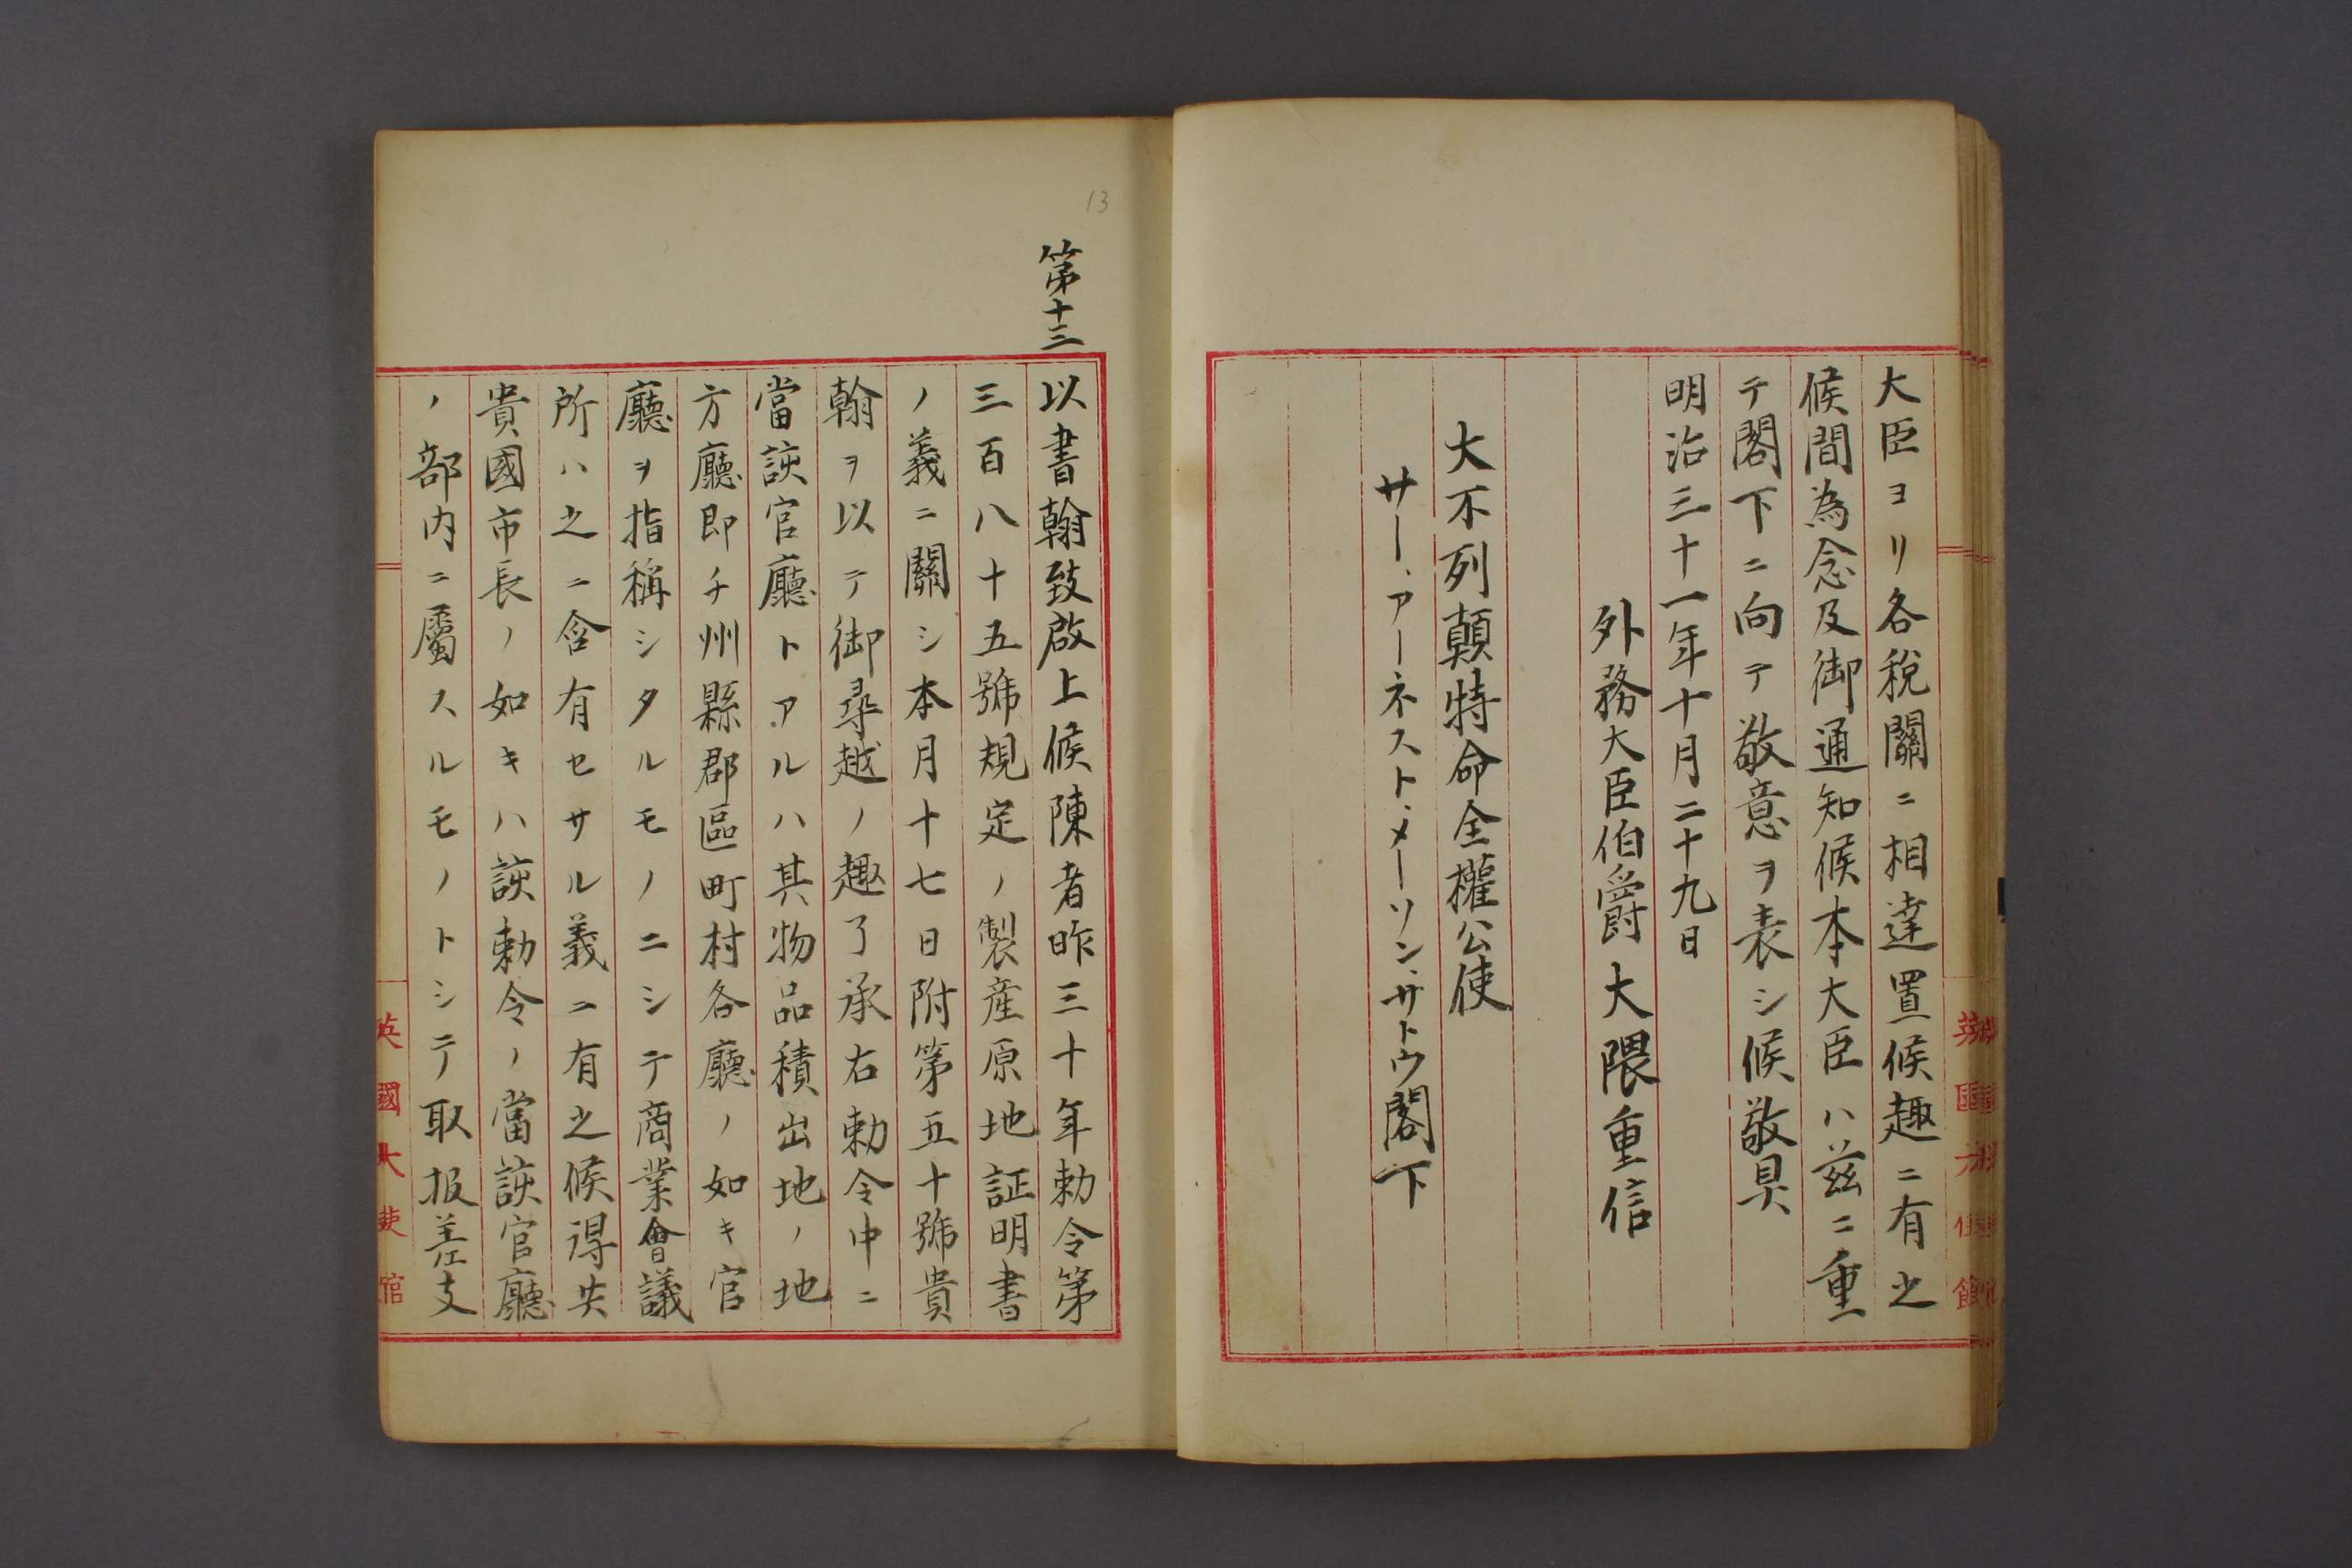 大臣ヨリ各税關ニ相達置候趣ニ有之
候間為念及御通知候本大臣ハ茲ニ重
テ閣下ニ向テ敬意ヲ表シ候敬具
明治三十一年十月二十九日
外務大臣伯爵大隈重信
大不列顛特命全權公使
サー、アーネスト、メーソン、サトウ閣下
13
第十三
以書翰致啟上候陳者昨三十年勅令第
三百八十五號規定ノ製産原地証明書
ノ義ニ關シ本月十七日附第五十號貴
翰ヲ以テ御尋越ノ趣了承右勅令中ニ
當該官廳トアルハ其物品積出地ノ地
方廳即チ州縣郡區町村各廳ノ如キ官
廳ヲ指稱シタルモノニシテ商業會議
所ハ之ニ含有セサル義ニ有之候得共
貴國市長ノ如キハ該勅令ノ當該官廳
ノ部内ニ屬スルモノトシテ取扱差支
英國大使館